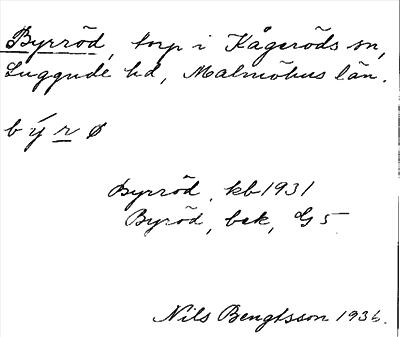 Byrröd, torp i Kågeröds sn,
Luggude hd, Malmöhus län.
b ý r ø
Byrröd, kb 1931
Byröd, bek, G 5
Nils Bengtsson 1936.